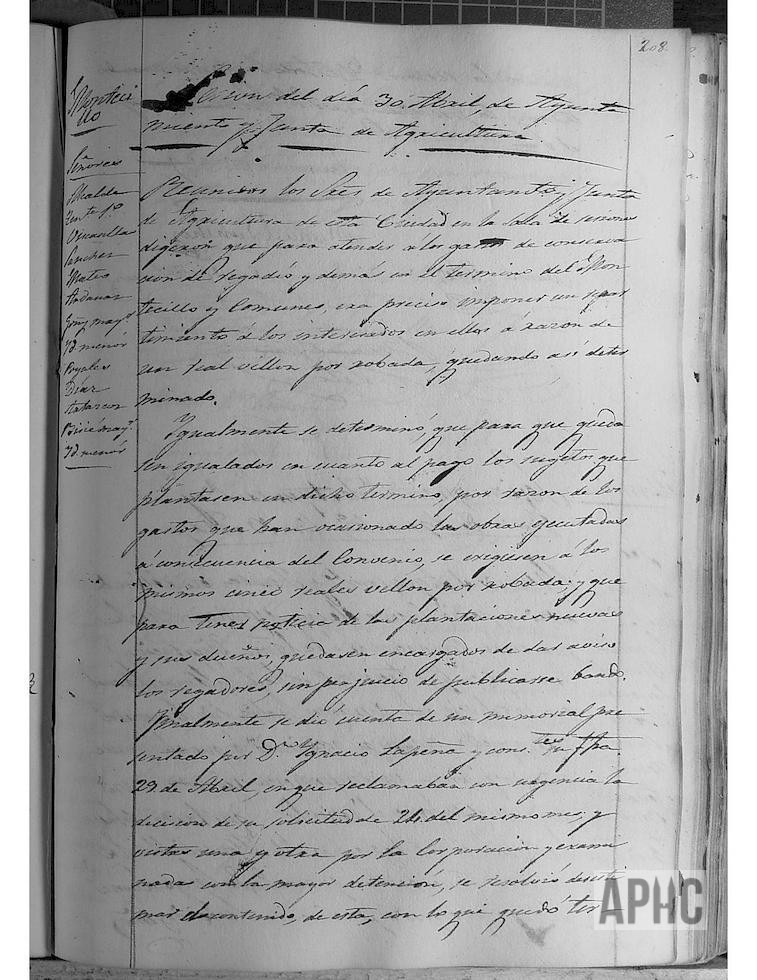 208.
Monteci
llo
Señores
Alcalde
Tente 1º
Sanchez
Mateo
Andanas
menor
Royales
Diaz
Yd. menor
Sesion del día 30 Abril, de Ayunta
miento y Junta de Agricultura.
Reunidos los Sres de Ayuntamto y Junta
de Agricultura de esta Ciudad en la Sala de sesiones
digeron que para atender a los gastos de conserva
cion de regadío y demás en el termino del Mon
tecillo y Comunes, era preciso imponer un repar
timiento á los interesados en ellos á razon de
un real vellon por robada, quedando así deter
minado.
Ygualmente se determinó, que para que queda
sen igualados en cuanto al pago los sugetos que
plantasen en dicho termino, por razon de los
gastos que han ocasionado las obras ejecutadas
á consecuencia del Convenio, se exigiesen á los
mismos cinco reales vellon por robada; y que
para tener noticia de las plantaciones nuevas
y sus dueños, quedasen encargados de dar aviso
los regadores, sin perjuicio de publicarse bando.
Finalmente se dió cuenta de un memorial pre
sentado por Dn. Ygnacio Lapeña y cons.tes su fha.
29. de Abril, en que reclamaban con urgencia la
decision de su solicitud de 24. del mismo mes; y
vistas una y otra por la Corporacion y exami
nadas con la mayor detencion, se resolvió desesti
mar el contenido, de esta, con lo que quedó ter
APHC